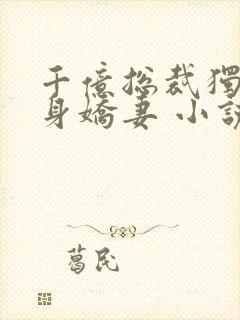 千億總裁獨
身嬌妻 小說
葛民